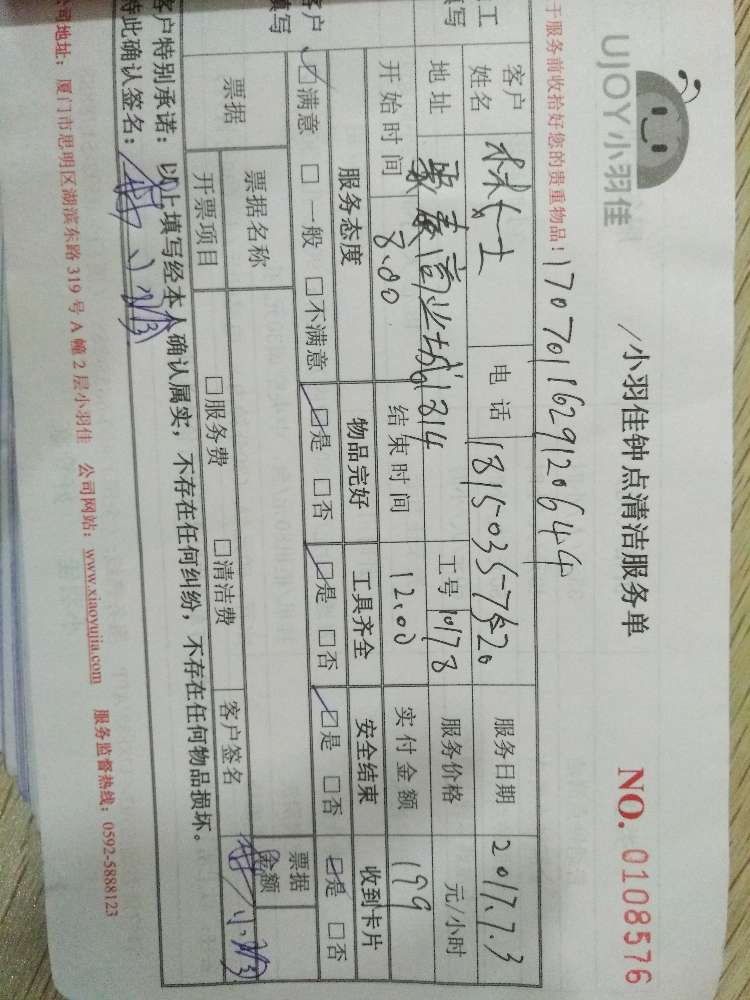 UJOY小羽佳
小羽佳钟点清洁服务单
NO. 0108576
于服务前收拾好您的贵重物品!
17070116291 20644
客户姓名 林女士 电话 18150357520 服务日期 2017.7.3
地址 商业城1814 工号 1078 服务价格 元/小时
开始时间 8.00 结束时间 12.00 实付金额 199
服务态度 物品完好 工具齐全 安全结束 收到卡片
☑满意 □一般 □不满意 ☑是 □否 ☑是 □否 ☑是 □否 ☑是 □否
票据 票据名称 票据金额
开票项目 □服务费 □清洁费 客户签名
客户特别承诺:以上填写经本人确认属实,不存在任何纠纷,不存在任何物品损坏。
特此确认签名:
公司地址:厦门市思明区湖滨东路319号A幢2层小羽佳 公司网站:www.xiaoyujia.com 服务监督热线:0592-5888123